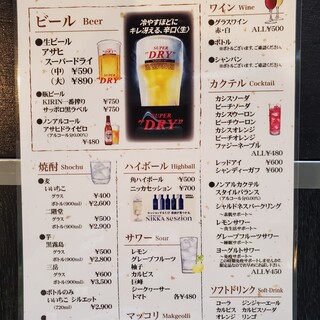 ビール Beer
●生ビール
アサヒ
スーパードライ
(中) ¥590
(大) ¥890
●瓶ビール
KIRIN一番搾り ¥750
サッポロ黒ラベル ¥750
●ノンアルコール
アサヒドライゼロ
(アルコール分0.00%)
¥480
冷やすほどに
キレ冴える、辛口〈生〉
SUPER
"DRY"
SUPER
"DRY"
焼酎 Shochu
●麦
いいちこ
グラス ¥400
ボトル(900ml) ¥2,600
二階堂
グラス ¥500
ボトル(900ml) ¥2,900
●芋
黒霧島
グラス ¥500
ボトル(900ml) ¥3,000
三岳
グラス ¥600
ボトル(900ml) ¥3,500
●ボトルのみ
いいちこ シルエット
(720ml) ¥2,900
ハイボール Highball
角ハイボール ¥500
ニッカセッション ¥700
NIKKA SESSION
サワー Sour
レモン
グレープフルーツ
柚子
カルピス
巨峰
シークヮーサー
トマト 各¥480
マッコリ Makgeolli
ワイン Wine
●グラスワイン
赤・白 ALL¥500
●ボトル
●シャンパン
カクテル Cocktail
カシスソーダ
ピーチソーダ
カシスウーロン
ピーチウーロン
カシスオレンジ
ピーチオレンジ
ファジーネーブル
ALL¥480
レッドアイ ¥600
シャンディーガフ ¥600
●ノンアルカクテル
スタイルバランス
(アルコール分0.00%)
シャルドネスパークリング
レモンサワー
グレープフルーツサワー
ヨーグルトサワー
ALL¥450
ソフトドリンク Soft-Drink
コーラ ジンジャーエール
カルピス オレンジ